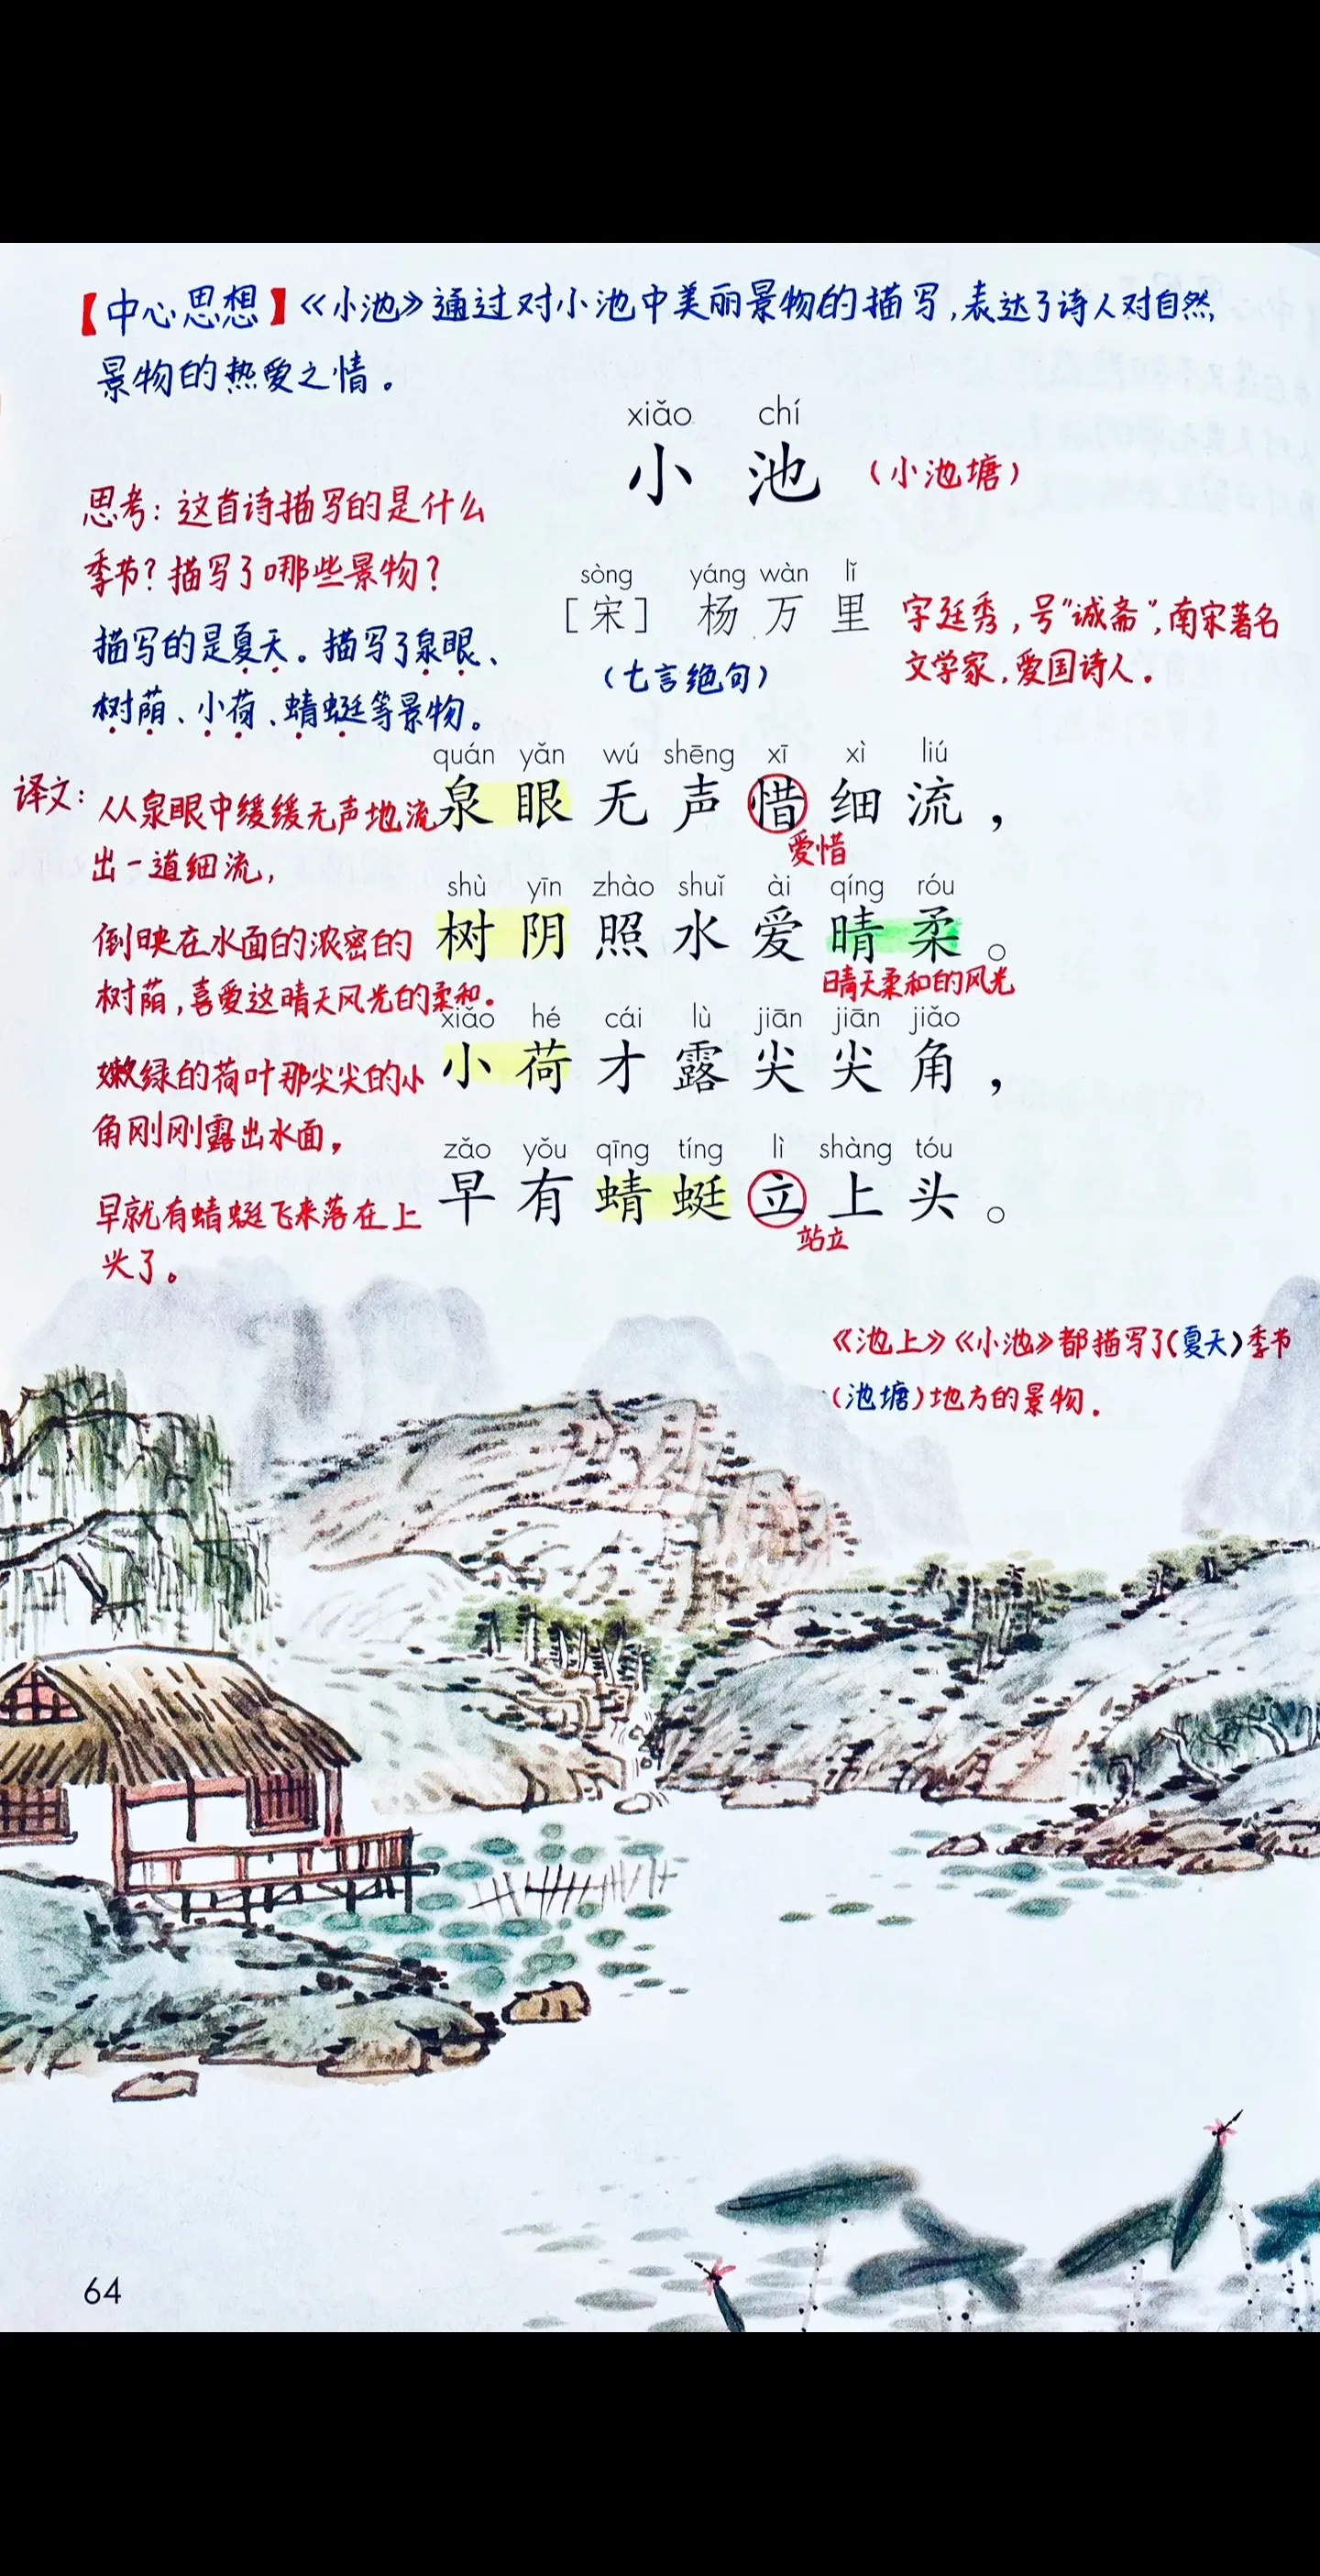 【中心思想】《小池》通过对小池中美丽景物的描写,表达了诗人对自然
景物的热爱之情。
xiǎo chí
小 池 (小池塘)
思考:这首诗描写的是什么
季节?描写了哪些景物?
描写的是夏天。描写了泉眼、
树荫、小荷、蜻蜓等景物。
sòng yáng wàn lǐ
[宋] 杨万里
(七言绝句)
字廷秀,号"诚斋",南宋著名
文学家,爱国诗人.
译文:从泉眼中缓缓无声地流
出一道细流,
quán yǎn wú shēng xī xì liú
泉眼无声惜细流,
爱惜
倒映在水面的浓密的
树荫,喜爱这晴天风光的柔和.
shù yīn zhào shuǐ ài qíng róu
树阴照水爱晴柔。
晴天柔和的风光
嫩绿的荷叶那尖尖的小
角刚刚露出水面,
xiǎo hé cái lù jiān jiān jiǎo
小荷才露尖尖角,
早就有蜻蜓飞来落在上
头了。
zǎo yǒu qīng tíng lì shàng tóu
早有蜻蜓立上头。
站立
《池上》《小池》都描写了(夏天)季节
(池塘)地方的景物.
64